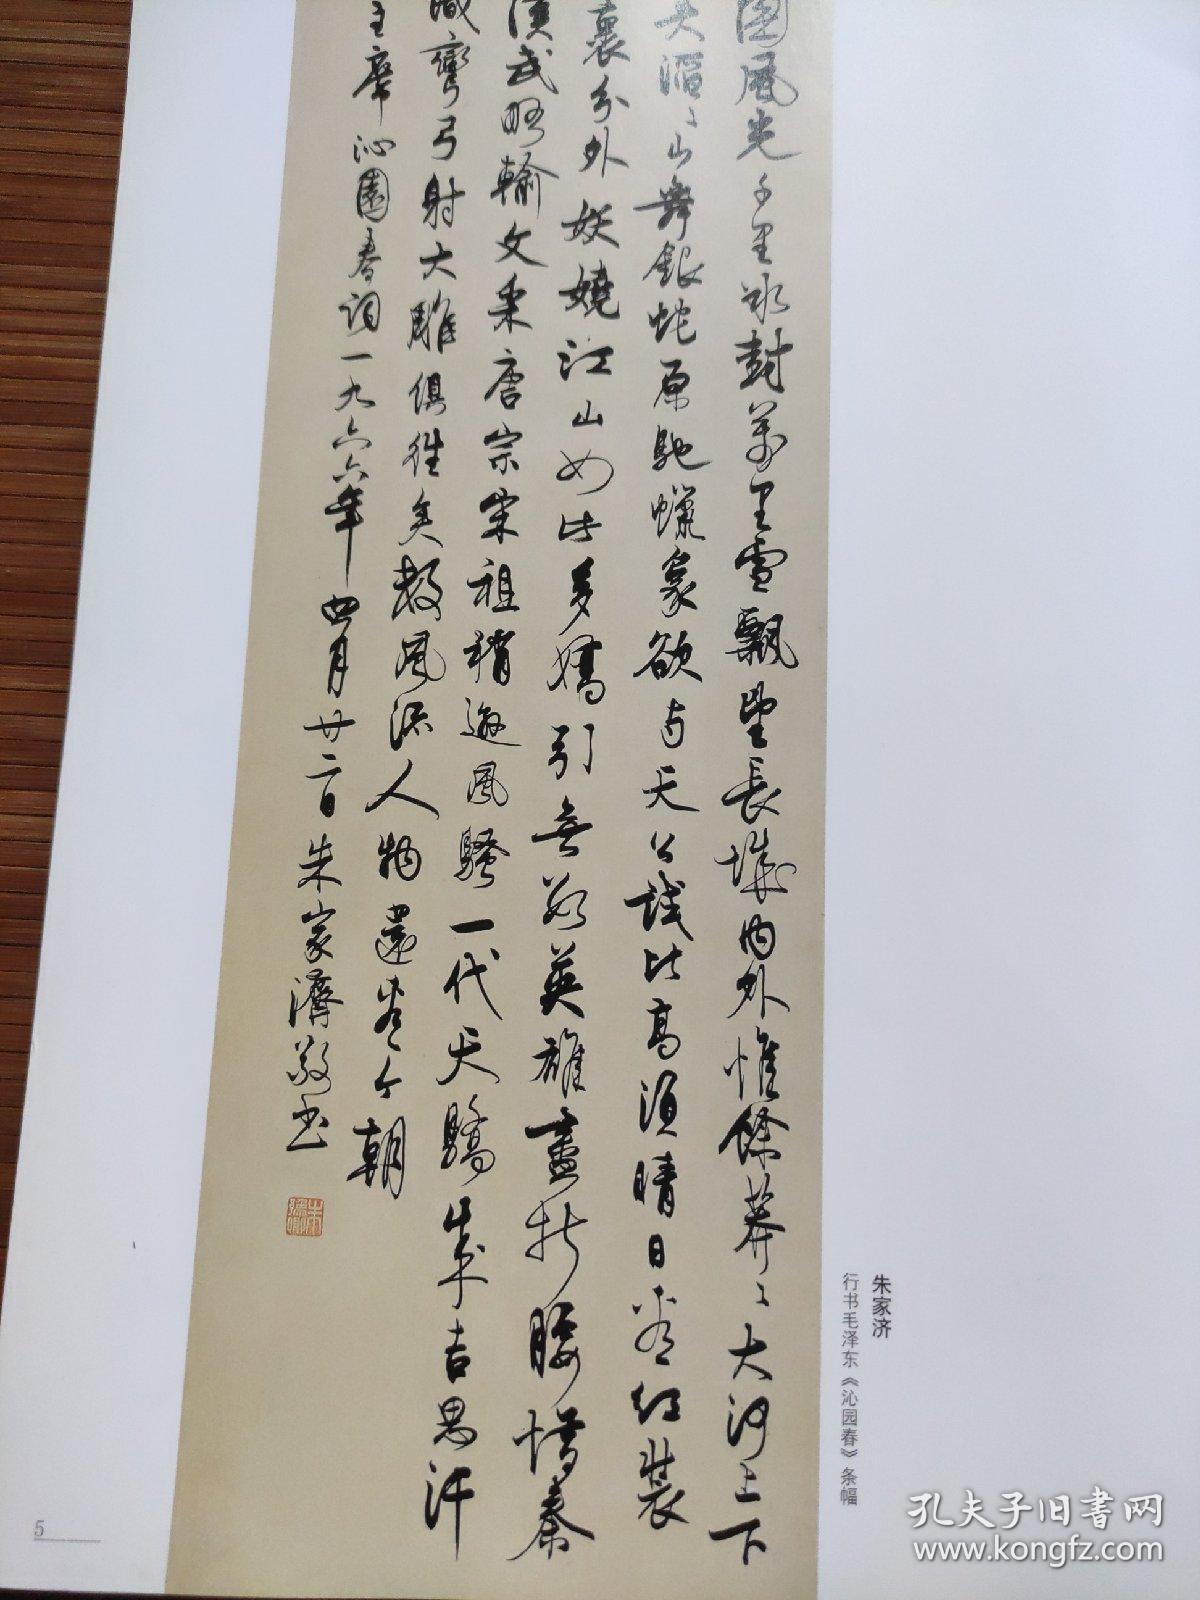 國風光千里冰封萬里雪飄望長城内外惟餘莽〻大河上下
失滔〻山舞銀蛇原馳蠟象欲与天公試比髙須晴日看红裝
裹分外妖嬈江山如此多嬌引無數英雄盡折腰惜秦
漢武略輸文采唐宗宋祖稍遜風騷一代天驕成吉思汗
識彎弓射大雕俱往矣數風流人物還看今朝
主席沁園春词一九六六年四月廿二日朱家濟敬书
朱家济
行书毛泽东《沁园春》条幅
5
孔夫子旧书网
www.kongfz.com